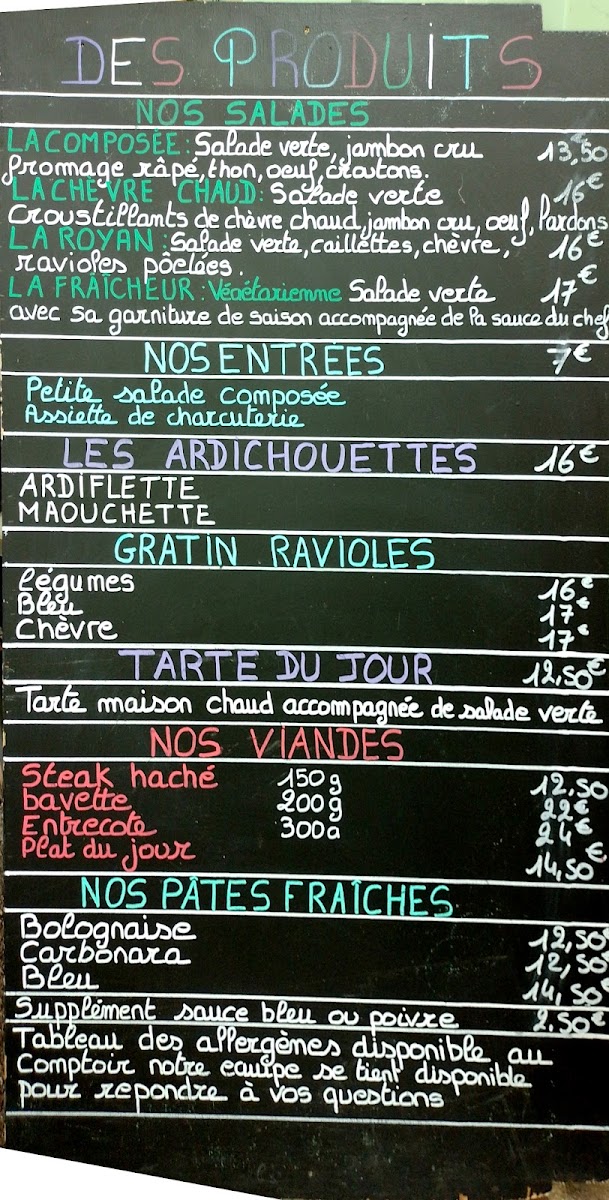 DES PRODUITS
NOS SALADES
LA COMPOSÉE : Salade verte, jambon cru 13,50
fromage râpé, thon, oeuf, croutons.
LA CHÈVRE CHAUD : Salade verte 16€
Croustillants de chèvre chaud, jambon cru, oeuf, lardons
LA ROYAN : Salade verte, caillettes, chèvre, 16€
ravioles pôelées.
LA FRAÎCHEUR : Végétarienne Salade verte 17€
avec sa garniture de saison accompagnée de la sauce du chef
NOS ENTRÉES 7€
Petite salade composée
Assiette de charcuterie
LES ARDICHOUETTES 16€
ARDIFLETTE
MAOUCHETTE
GRATIN RAVIOLES
légumes 16€
Bleu 17€
Chèvre 17€
TARTE DU JOUR 12,50€
Tarte maison chaud accompagnée de salade verte
NOS VIANDES
Steak haché 150g 12,50
bavette 200g 22€
Entrecote 300g 24€
Plat du jour 14,50€
NOS PÂTES FRAÎCHES
Bolognaise 12,50€
Carbonara 12,50€
Bleu 14,50€
Supplément sauce bleu ou poivre 2.50€
Tableau des allergèmes disponible au
Comptoir notre equipe se tient disponible
pour repondre à vos questions